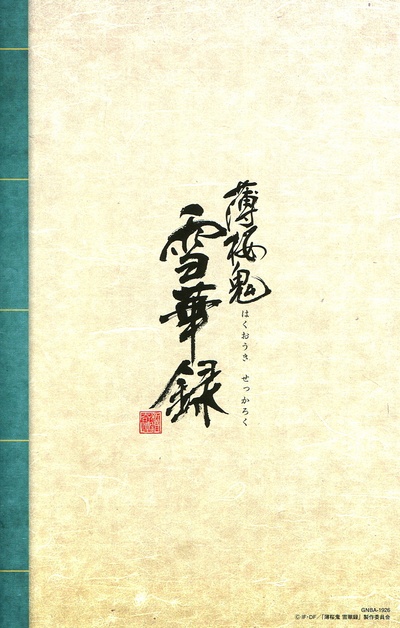 薄桜鬼
雪華録
はくおうき せっかろく
GNBA-1926
© IF・DF/「薄桜鬼 雪華録」製作委員会